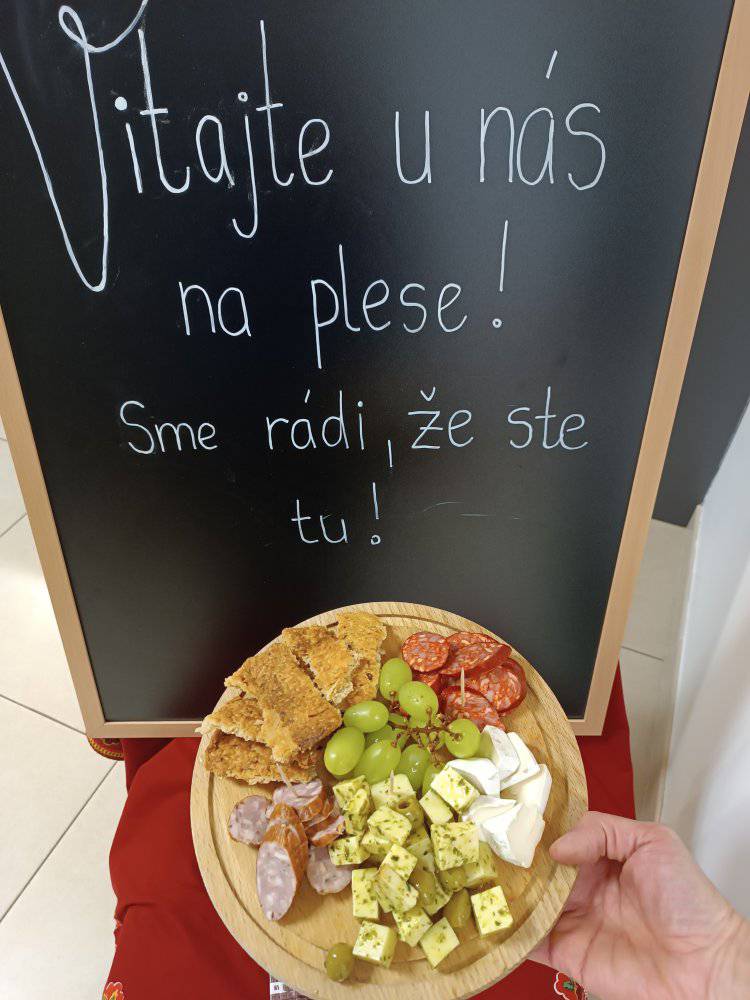 Vitajte u nás
na plese!
Sme rádi, že ste
tu!